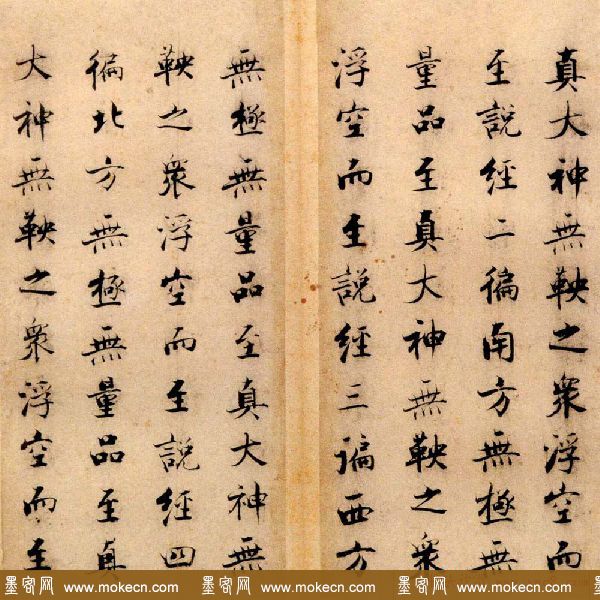 真大神無鞅之衆浮空而
至說經二徧南方無極無
量品至真大神無鞅之衆
浮空而至說經三徧西方
無極無量品至真大神無
鞅之衆浮空而至說經四
徧北方無極無量品至真
大神無鞅之衆浮空而至
墨客网 www.mokecn.com 墨客网 www.mokecn.com 墨客网 www.mokecn.com 墨